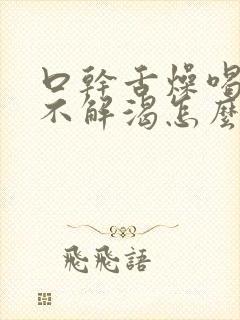 口幹舌燥喝
不解渴怎麼
飛飛語